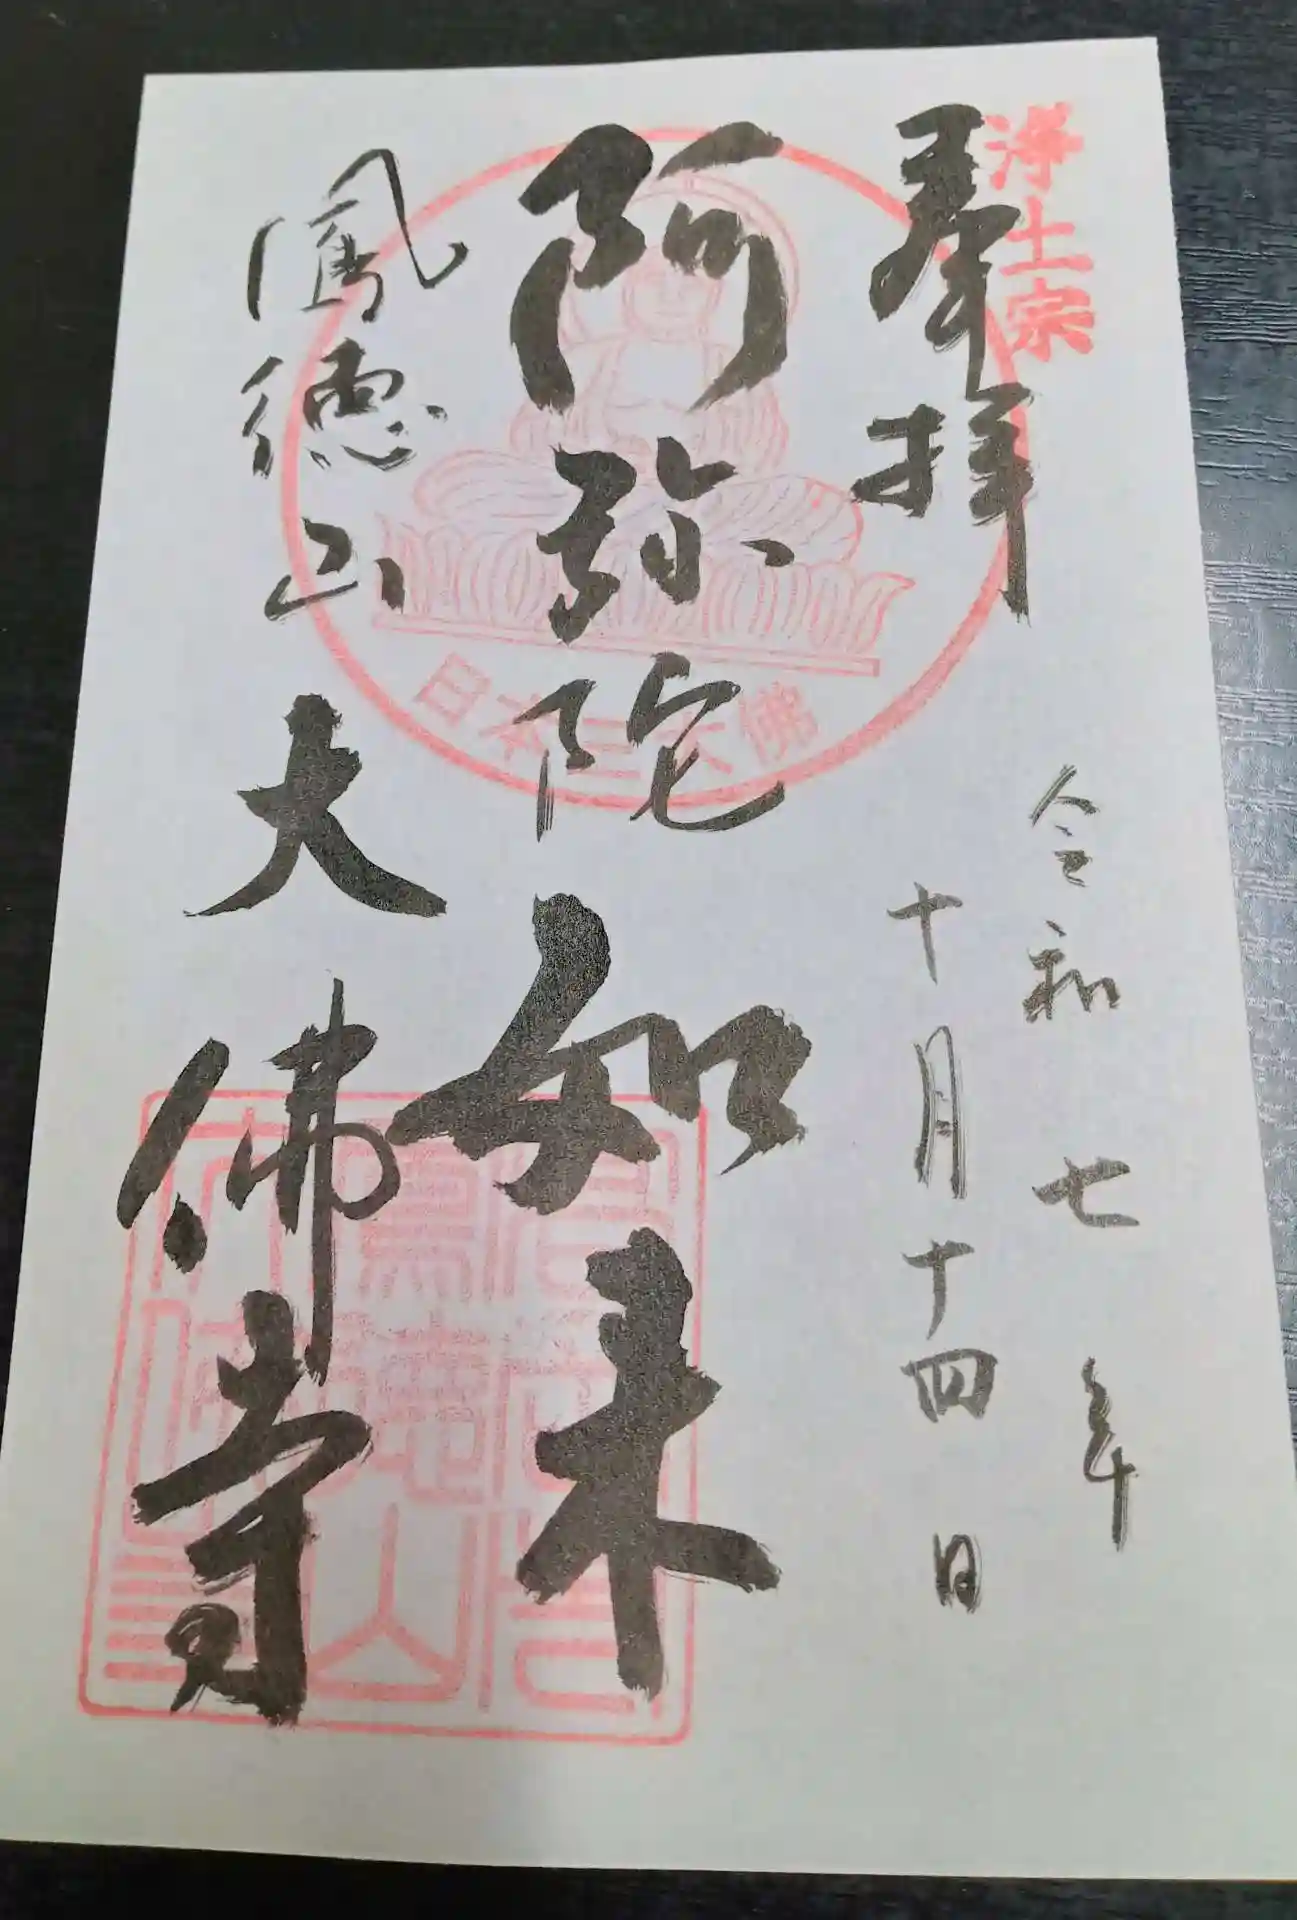 浄土宗
奉拝
令和七年
十月十四日
阿弥陀如来
日本三大佛
鳳德山
大佛寺